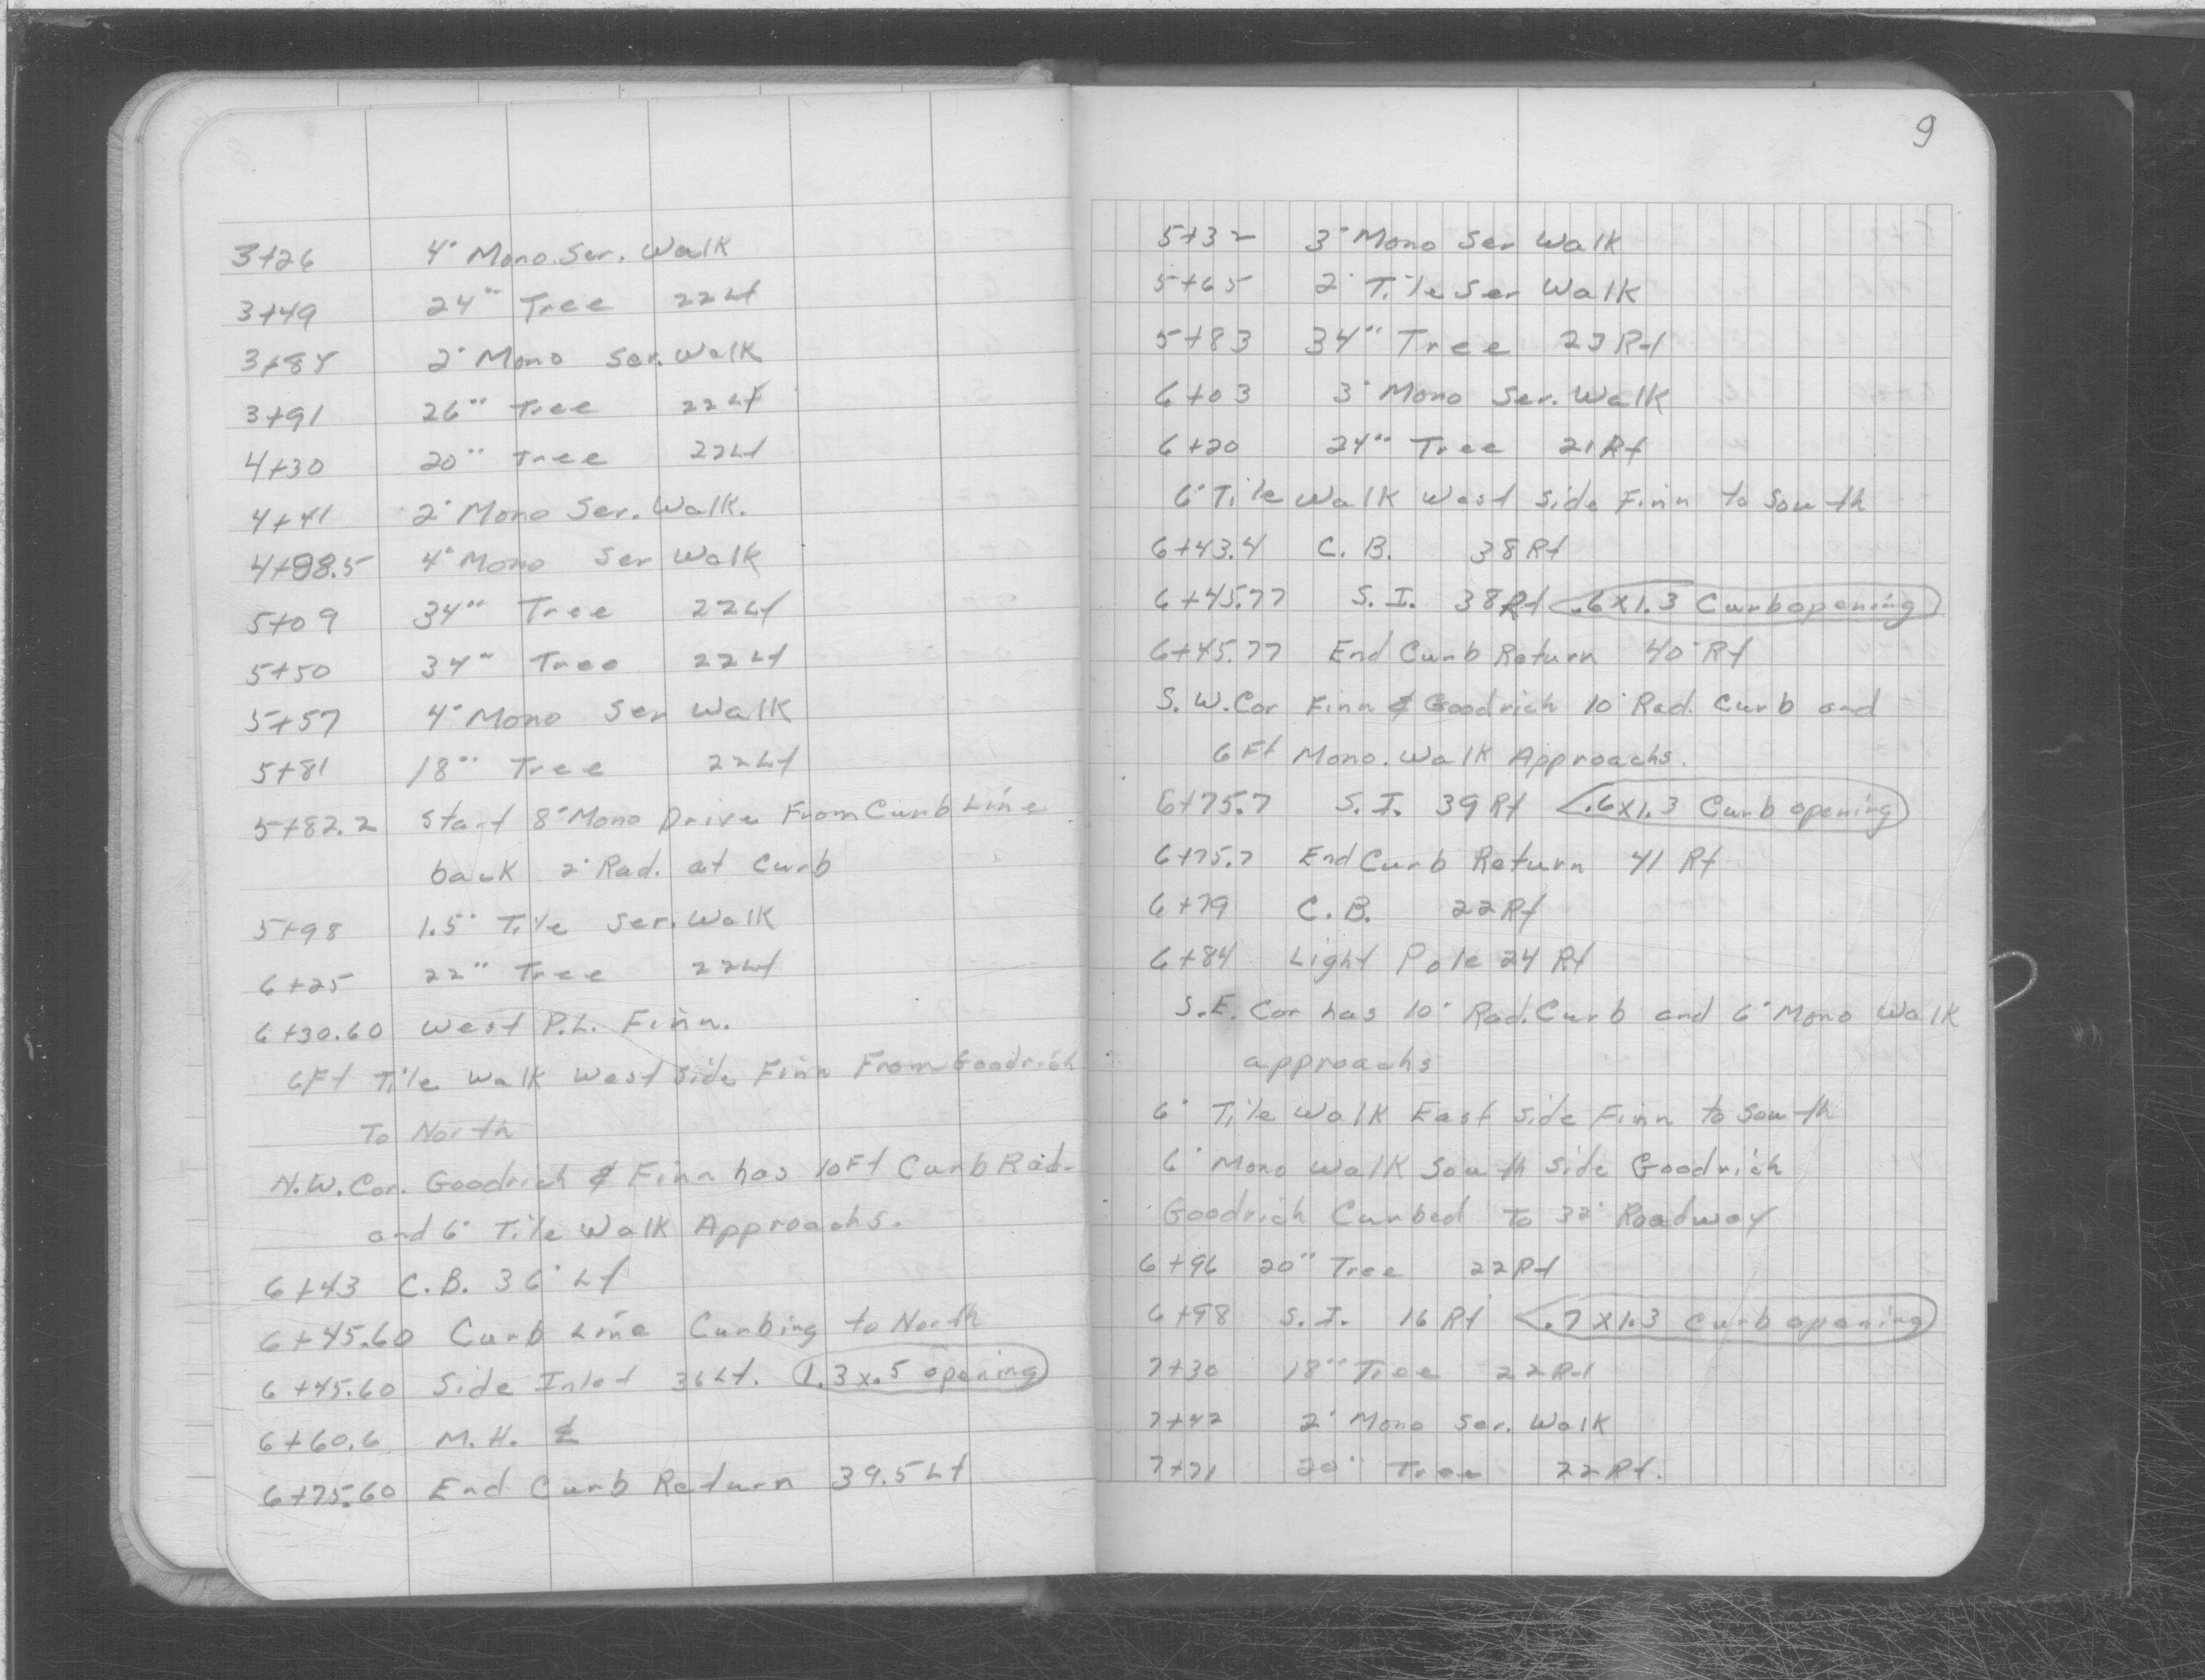 3+26 4' Mono. Ser. Walk
3+49 24" Tree 22 Lt
3+87 2' Mono Ser. Walk
3+91 26" Tree 22 Lt
4+30 20" Tree 22 Lt
4+41 2' Mono Ser. Walk.
4+98.5 4' Mono Ser Walk
5+09 34" Tree 22 Lt
5+50 34" Tree 22 Lt
5+57 4' Mono Ser Walk
5+81 18" Tree 22 Lt
5+82.2 Start 8' Mono Drive From Curb Line
back 2' Rad. at Curb
5+98 1.5' Tile Ser. Walk
6+25 22" Tree 22 Lt
6+30.60 West P.L. Finn.
6Ft Tile Walk West Side Finn From Goodrich
To North
N.W. Cor. Goodrich & Finn has 10Ft Curb Rad.
and 6' Tile Walk Approachs.
6+43 C.B. 36' Lt
6+45.60 Curb Line Curbing to North
6+45.60 Side Inlet 36 Lt. 1.3 x .5 opening
6+60.6 M.H. ℄
6+75.60 End Curb Return 39.5 Lt
9
5+32 3' Mono Ser Walk
5+65 2' Tile Ser Walk
5+83 34" Tree 23 Rt
6+03 3' Mono Ser. Walk
6+20 24" Tree 21 Rt
6' Tile Walk West Side Finn to South
6+43.4 C.B. 38 Rt
6+45.77 S.I. 38 Rt .6 x 1.3 Curb opening
6+45.77 End Curb Return 40' Rt
S.W. Cor Finn & Goodrich 10' Rad. Curb and
6 Ft Mono. Walk Approachs.
6+75.7 S.I. 39 Rt .6 x 1.3 Curb opening
6+75.7 End Curb Return 41 Rt
6+79 C.B. 22 Rt
6+84 Light Pole 24 Rt
S.E. Cor has 10' Rad. Curb and 6' Mono Walk
approachs
6' Tile Walk East Side Finn to South
6' Mono Walk South Side Goodrich
Goodrich Curbed To 32' Roadway
6+96 20" Tree 22 Rt
6+98 S.I. 16 Rt .7 x 1.3 Curb opening
7+30 18" Tree 22 Rt
7+42 2' Mono Ser. Walk
7+71 20" Tree 22 Rt.